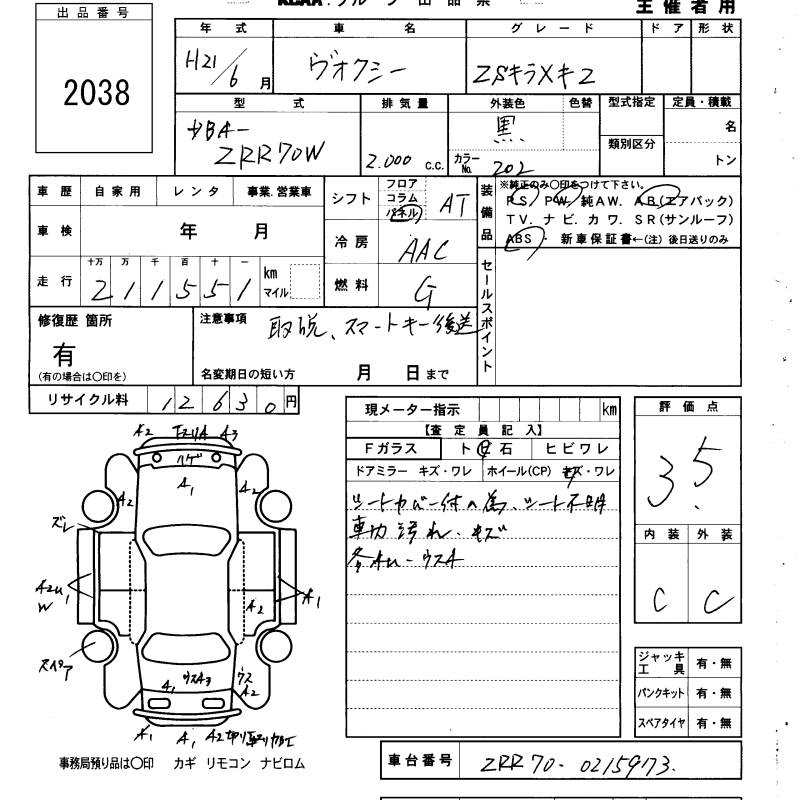 主催者用
出品番号
2038
年式 車名 グレード ドア 形状
H21/6月 ヴォクシー ZSキラメキ2
型式 排気量 外装色 色替 型式指定 定員・積載
DBA-
ZRR70W
2.000 c.c.
黒
カラーNo. 202
類別区分
名
トン
車歴 自家用 レンタ 事業.営業車
車検 年 月
走行 十万 万 千 百 十 一
211551 km マイル
シフト フロア コラム パネル AT
冷房 AAC
燃料 G
装備品 ※純正のみ〇印をつけて下さい。
PS. PW. 純AW. AB(エアバック)
TV. ナビ. カワ. SR(サンルーフ)
ABS ・ 新車保証書←(注) 後日送りのみ
セールスポイント
修復歴 箇所
有
(有の場合は〇印を)
注意事項 取説、スマートキー後送
名変期日の短い方 月 日まで
リサイクル料 12630円
現メーター指示 km
【査定員記入】
Fガラス ト 石 ヒビワレ
ドアミラー キズ・ワレ ホイール(CP) キズ・ワレ
シートカバー付の為、シート不明
車内汚れ・キズ
各AU-ウスA
評価点
3.5
内装 外装
C C
A2 A3
ハゲ
A1
A2 A2
ズレ
A2U W
A1
A2
スペア
A1 ウスA3 ウス A2
A1 A1 A2
ジャッキ 工具 有・無
パンクキット 有・無
スペアタイヤ 有・無
事務局預り品は〇印 カギ リモコン ナビロム
車台番号 ZRR70-0215973.